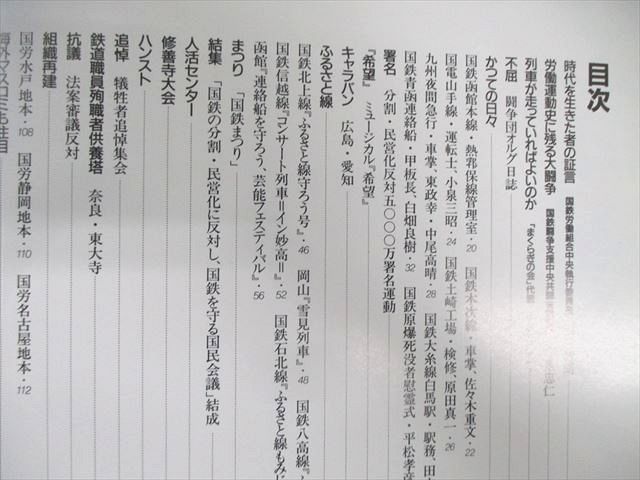 目次
時代を生きた者の証言 国鉄労働組合中央執行委員
労働運動史に残る大闘争 国鉄闘争支援中央共闘
列車が走っていればよいのか 「まくらぎの会」代
不屈 闘争団オルグ日誌
かつての日々
国鉄函館本線・熱郛保線管理室・20 国鉄木次線・車掌、佐々木重文・22
国電山手線・運転士、小泉三昭・24 国鉄土崎工場・検修、原田真一・26
九州夜間急行・車掌、東政幸・中尾高晴・28 国鉄大糸線白馬駅・駅務、田
国鉄青函連絡船・甲板長、白畑良樹・32 国鉄原爆死没者慰霊式・平松孝彦
署名 分割・民営化反対五〇〇〇万署名運動
『希望』 ミュージカル『希望』
キャラバン 広島・愛知
ふるさと線
国鉄北上線『ふるさと線守ろう号』・46 岡山『雪見列車』・48 国鉄八高線『
国鉄信越線『コンサート列車=イン妙高=』・52 国鉄石北線『ふるさと線もみじ
函館『連絡船を守ろう、芸能フェスティバル』・56
まつり 「国鉄まつり」
結集 「国鉄の分割・民営化に反対し、国鉄を守る国民会議」結成
人活センター
修善寺大会
ハンスト
追悼 犠牲者追悼集会
鉄道職員殉職者供養塔 奈良・東大寺
抗議 法案審議反対
組織再建
国労水戸地本・108 国労静岡地本・110 国労名古屋地本・112
海外マスコミも注目